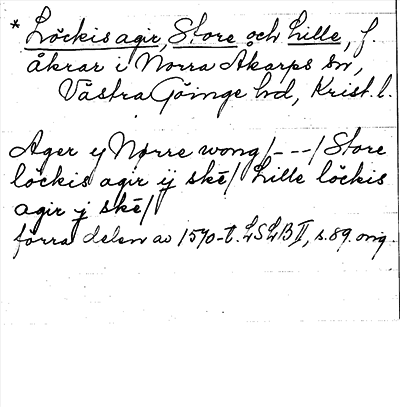 * Löckis agir, Store och Lille, f.
åkrar i Norra Åkarps sn,
Västra Göinge hd, Krist. l.
Ager y Nørre wong/---/Store
löckis agir ij skē/ Lille löckis
agir j skē/
förra delen av 1570-t. LSLB II, s. 89. orig.